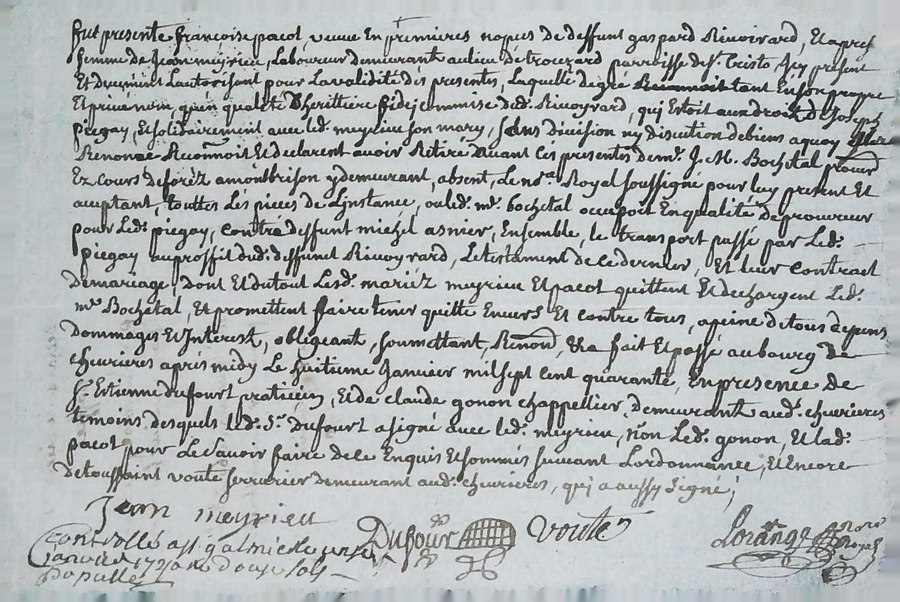 fut presente francoise pacot, veuve En premieres nopces de deffunt gaspard Rivoirard, Et apres
femme de Jean meyrieu, Laboureur demeurant au lieu de trouezard parroisse de st. Cristo, Icy present
Et duement Lautorisant pour La validité des presentes, Laquelle de gré tant En son propre
Et privé nom qu'en qualité D'heritiere fideicommise dud. Rivoyrard, qui Estoit aux droix de Joseph
piegay, Et solidairement avec led. meyrieu son mary, sans division ny discution de biens a quoy
Renonce Reconnoit Et declarent avoir Retiré avant Ces presentes de mr. J. M. Bochetal procur
Ez cours de foréz a montbrison y demeurant, absent, Le nore. Royal soussigné pour luy present Et
acceptant, touttes Les pieces de L'instance, ou led. mr. bochetal occupoit En qualité de procureur
pour Led. piegay, contre deffunt michel asnier, Ensemble, le transport passé par Led.
piegay au proffit dud. deffunct Rivoyrard, Le testament de ce dernier, Et leur contract
de mariage, dont Et du tout Lesd. mariéz meyrieu Et pacot quittent Et dechargent Led.
mr. Bochetal, Et promettent faire tenir quitte Envers Et contre tous, a peine de tous depens
dommages Et Interest, obligeant, soumettant, Renond, &a fait Et passé au bourg de
chevrieres après midy Le huitieme Janvier mil sept Cent quarante, En presence de
sr. Estienne dufourt praticien, Et de claude gonon chappellier, demeurant aud. chevrieres
temoins desquels led. sr. Dufourt a signé avec led. meyrieu, non Led. gonon, Et lad.
pacot pour Le scavoir faire de ce Enquis Et sommés suivant Lordonnance, Et Encore
de toussaint voute serrurier demeurant aud. chevrieres, qui a aussy signé;
Jean meyrieu
Dufour voute Lorange nore royal
Controllé a st galmier le
janvier 1740 R douze sols